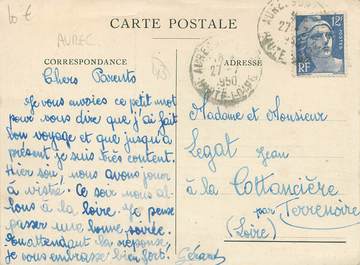 10 €
AUREC
CARTE POSTALE
CORRESPONDANCE
43
Chers Parents
Je vous envoies ce petit mot
pour vous dire que j'ai fait
bon voyage et que jusqu'à
présent je suis très content.
Hier soir nous avons jouer
à
Ce soir nous al-
lons à la Loire. Je pense
passer une bonne soirée.
En attendant la réponse
je vous embrasse bien fort!
Gérard
AUREC
27-
1950
HTE-LOIRE
12F
POSTES
RF
Madame et Monsieur
Legat Jean
à la Cottancière
par Terrenoire
(Loire)